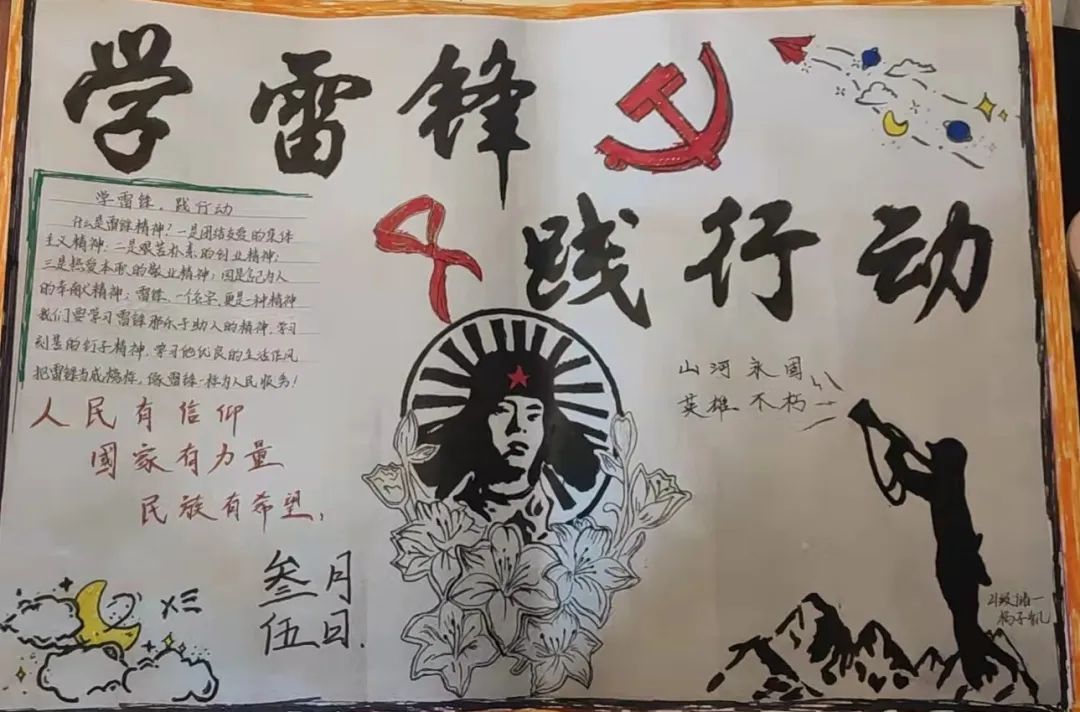 学雷锋
践行动
学雷锋，践行动
什么是雷锋精神？一是团结友爱的集体
主义精神；二是艰苦朴素的创业精神；
三是热爱本职的敬业精神；四是舍己为人
的奉献精神；雷锋，一位字，更是一种精神
我们要学习雷锋那乐于助人的精神，学习
刻苦的钉子精神，学习他优良的生活作风
把雷锋当成榜样，像雷锋一样为人民服务！
人民有信仰
國家有力量
民族有希望，
叁月
伍日.
山河永固
英雄不朽
21级